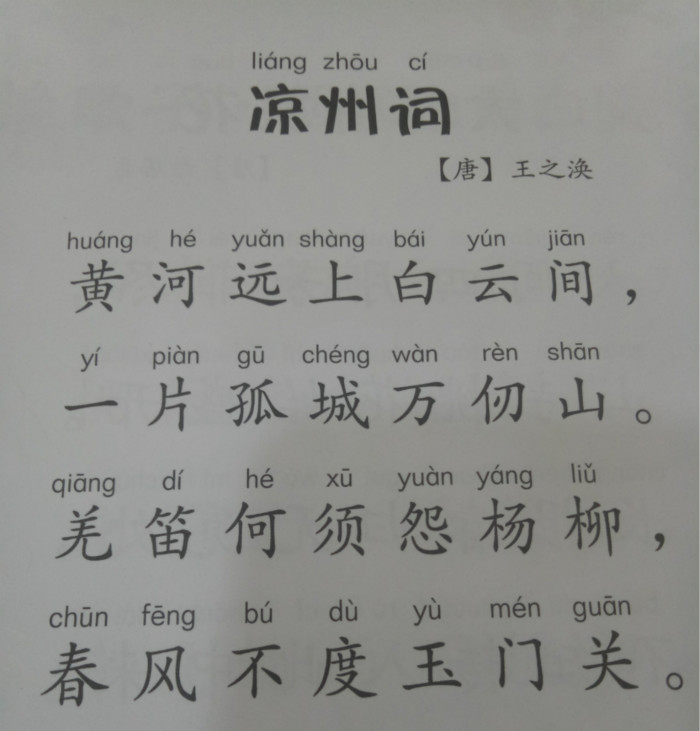 liáng zhōu cí
凉州词
【唐】王之涣
huáng hé yuǎn shàng bái yún jiān
黄河远上白云间，
yí piàn gū chéng wàn rèn shān
一片孤城万仞山。
qiāng dí hé xū yuàn yáng liǔ
羌笛何须怨杨柳，
chūn fēng bú dù yù mén guān
春风不度玉门关。